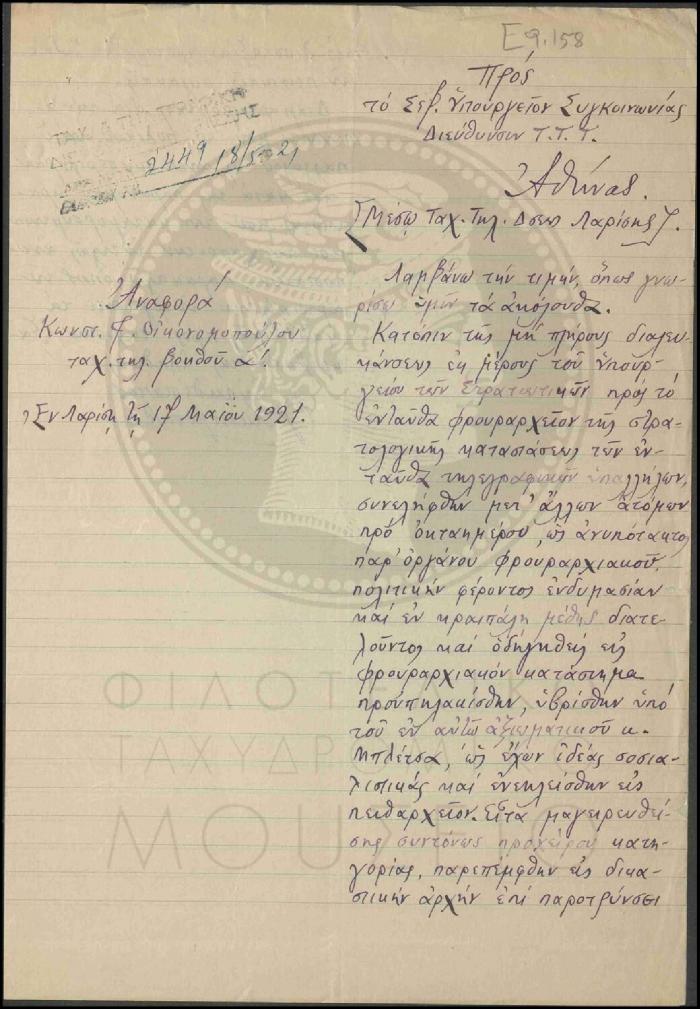 Ε9.158
Πρός
τό Σεβ. Ὑπουργεῖον Συγκοινωνίας
Διεύθυνσιν Τ.Τ.Τ.
Ἀθήνας.
Μέσῳ Ταχ. Τηλ. Δσεως Λαρίσης
2449 18/5 21
Ἀναφορά
Κωνστ. Φ. Οἰκονομοπούλου
ταχ. τηλ. βοηθοῦ α΄.
Ἐν Λαρίσῃ τῇ 17 Μαΐου 1921.
Λαμβάνω τήν τιμήν, ὅπως γνω-
ρίσω ὑμῖν τά ἀκόλουθα.
Κατόπιν τῆς μή πλήρους διαλευ-
κάνσεως ἐκ μέρους τοῦ Ὑπουρ-
γείου τῶν Στρατιωτικῶν πρός τό
ἐνταῦθα φρουραρχεῖον τῆς στρα-
τολογικῆς καταστάσεως τῶν ἐν-
ταῦθα τηλεγραφικῶν ὑπαλλήλων,
συνελήφθην μετ' ἄλλων ἀτόμων
πρό ὀκταημέρου, ὡς ἀνυπότακτος
παρ' ὀργάνου φρουραρχιακοῦ,
πολιτικήν φέροντος ἐνδυμασίαν
καί ἐν κραιπάλῃ μέθης διατε-
λοῦντος καί ὁδηγηθείς εἰς
φρουραρχιακόν κατάστημα
προὐπηλακίσθην, ὑβρίσθην ὑπό
τοῦ ἐν αὐτῷ ἀξιωματικοῦ κ.
Μπλέτσα, ὡς ἔχων ἰδέας σοσια-
λιστικάς καί ἐνεκλείσθην εἰς
πειθαρχεῖον. Εἶτα μαγειρευθεί-
σης συντόνως προχείρου κατη-
γορίας, παρεπέμφθην εἰς δικα-
στικήν ἀρχήν ἐπί παροτρύνσει
ΦΙΛΟΤΕΛΙΚΟ
ΤΑΧΥΔΡΟΜΙΚΟ
ΜΟΥΣΕΙΟ